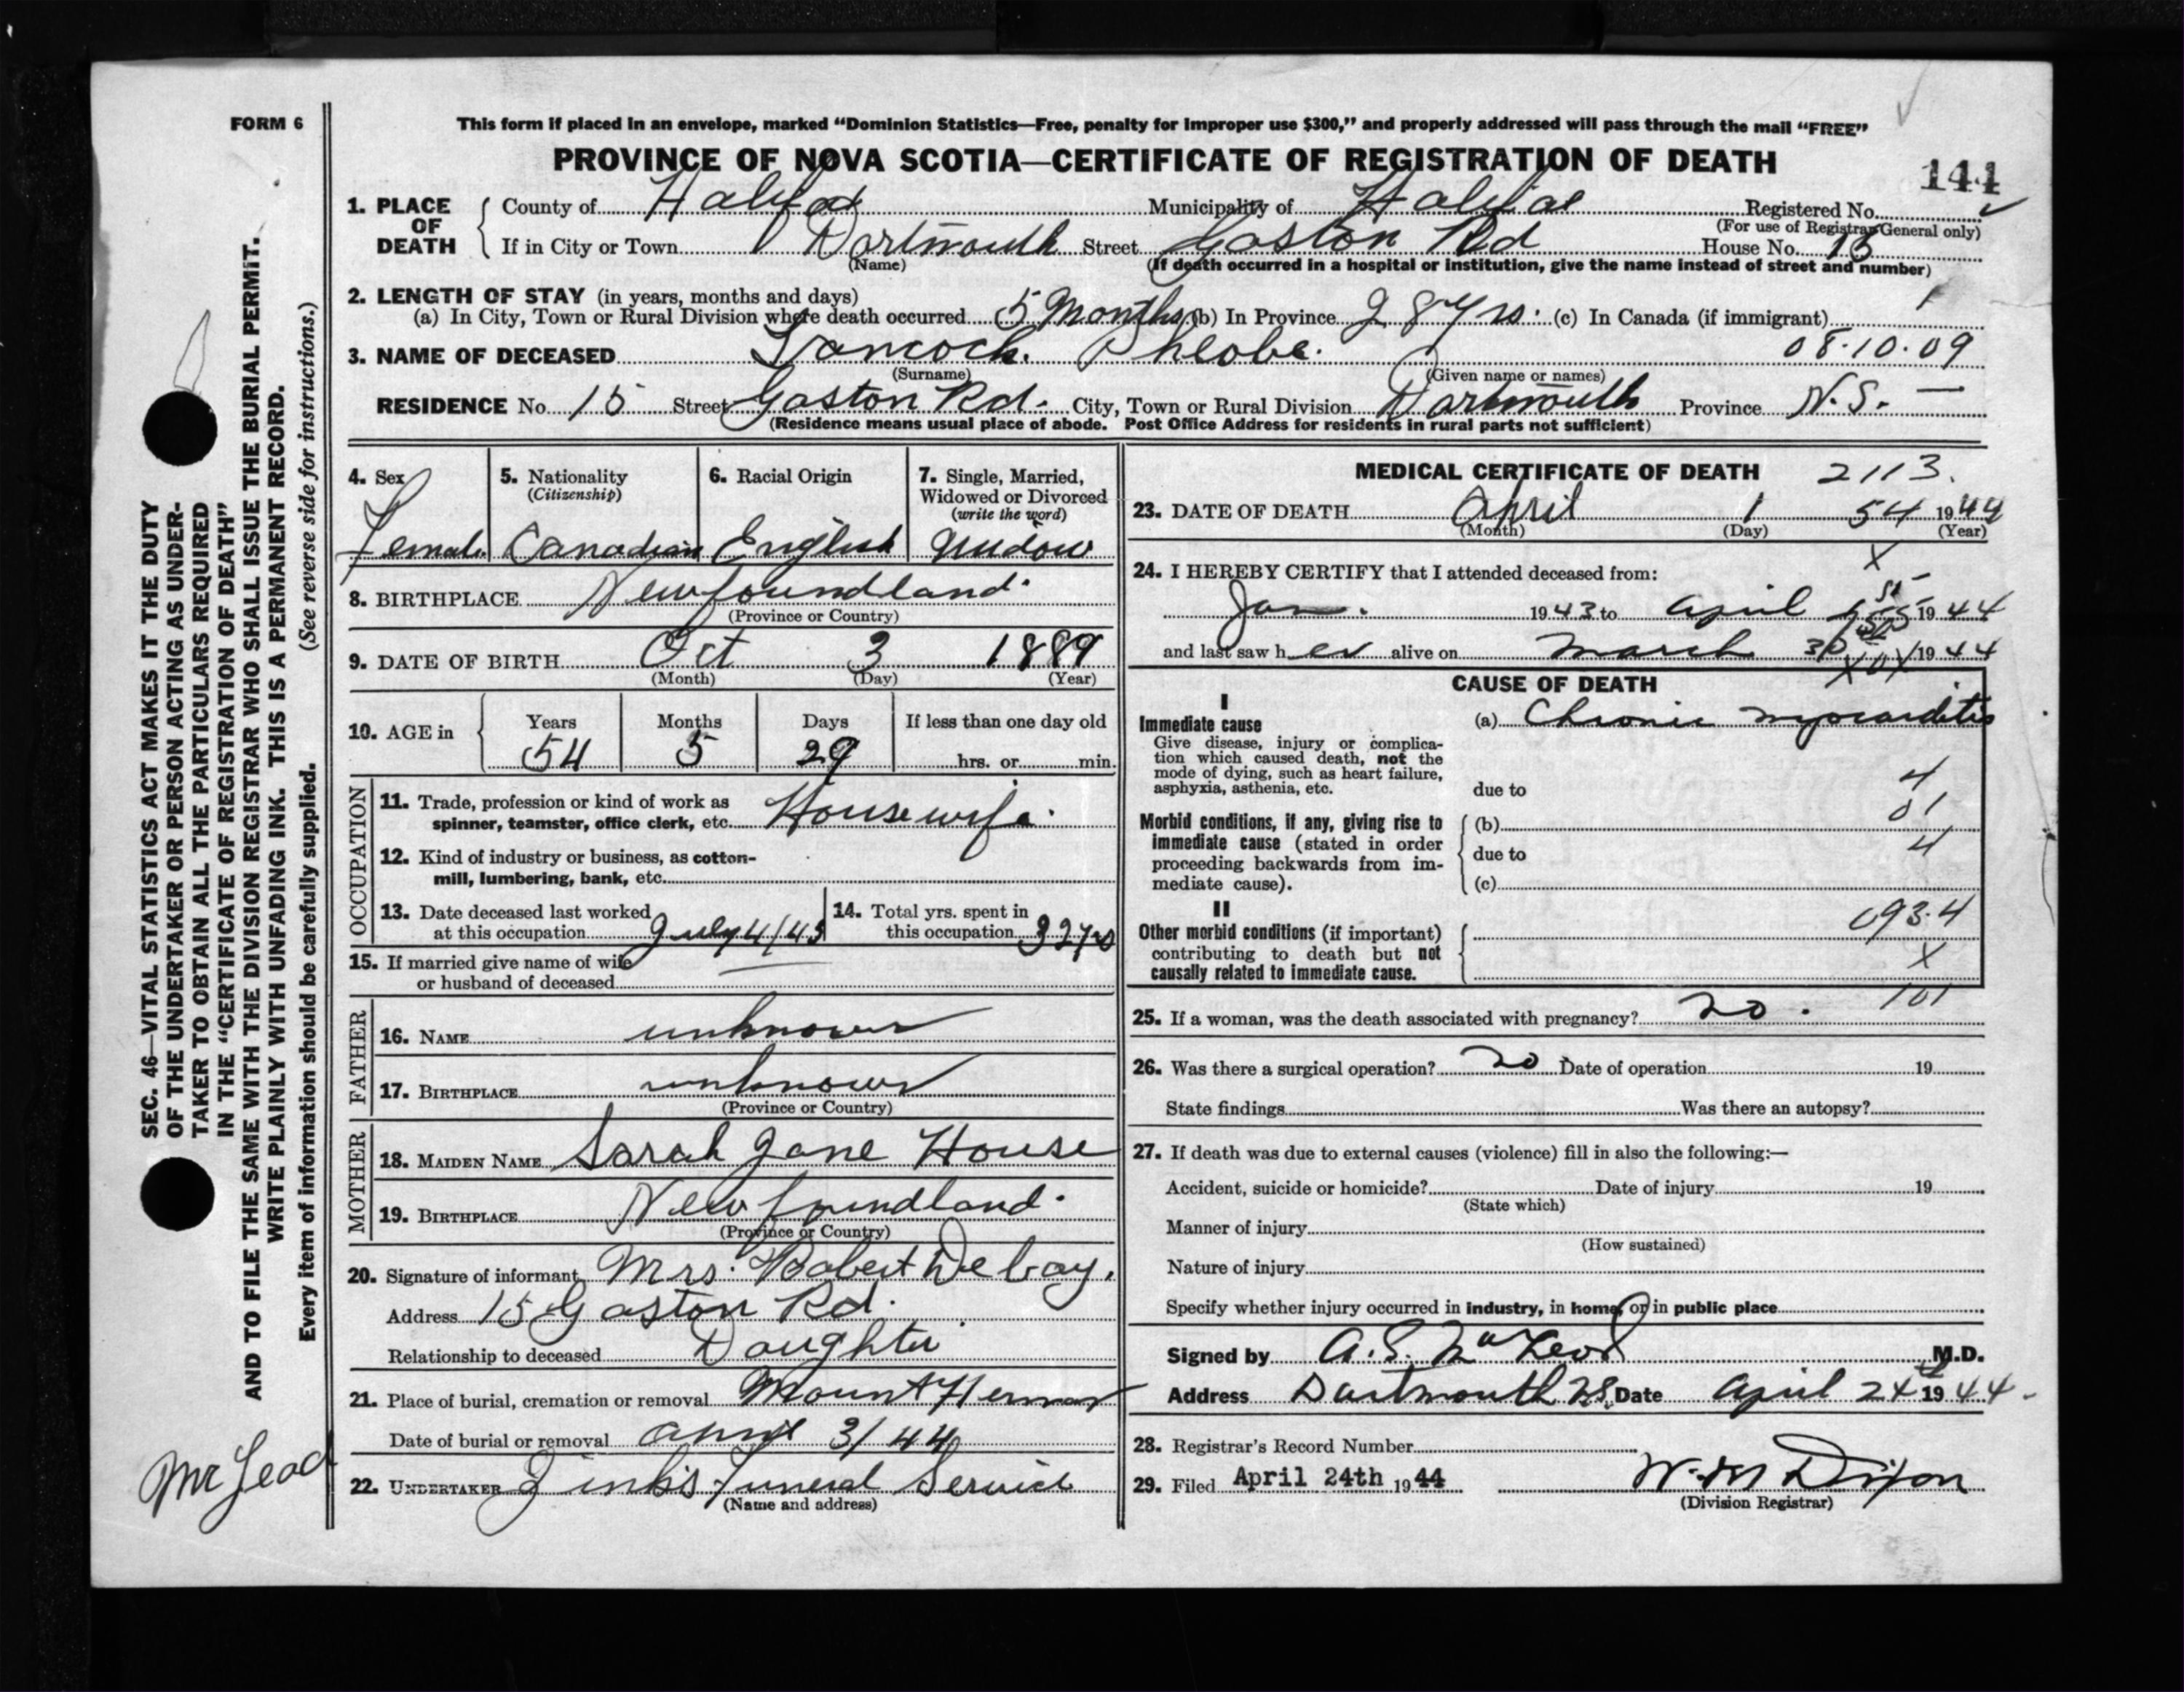 FORM 6
This form if placed in an envelope, marked “Dominion Statistics—Free, penalty for improper use $300,” and properly addressed will pass through the mail “FREE”
PROVINCE OF NOVA SCOTIA—CERTIFICATE OF REGISTRATION OF DEATH
144
1. PLACE OF DEATH { County of Halifax Municipality of Halifax Registered No.
(For use of Registrar General only)
If in City or Town Dartmouth Street Gaston Rd House No. 15
(Name) (If death occurred in a hospital or institution, give the name instead of street and number)
2. LENGTH OF STAY (in years, months and days)
(a) In City, Town or Rural Division where death occurred 5 Months (b) In Province 28 yrs. (c) In Canada (if immigrant)
3. NAME OF DECEASED Pheobe. 08.10.09
(Surname) (Given name or names)
RESIDENCE No. 15 Street Gaston Rd. City, Town or Rural Division Dartmouth Province N.S. —
(Residence means usual place of abode. Post Office Address for residents in rural parts not sufficient)
4. Sex Female
5. Nationality (Citizenship) Canadian
6. Racial Origin English
7. Single, Married, Widowed or Divorced (write the word) Widow
8. BIRTHPLACE Newfoundland.
(Province or Country)
9. DATE OF BIRTH Oct 3 1889
(Month) (Day) (Year)
10. AGE in { Years 54 Months 5 Days 29 If less than one day old
hrs. or min.
OCCUPATION
11. Trade, profession or kind of work as
spinner, teamster, office clerk, etc. Housewife.
12. Kind of industry or business, as cotton-
mill, lumbering, bank, etc.
13. Date deceased last worked
at this occupation July 4/43
14. Total yrs. spent in
this occupation 32 yrs
15. If married give name of wife
or husband of deceased
FATHER
16. NAME unknown
17. BIRTHPLACE unknown
(Province or Country)
MOTHER
18. MAIDEN NAME Sarah Jane House
19. BIRTHPLACE Newfoundland.
(Province or Country)
20. Signature of informant Mrs. Robert DeBay.
Address 15 Gaston Rd.
Relationship to deceased Daughter
21. Place of burial, cremation or removal Mount Hermon
Date of burial or removal April 3/44
22. UNDERTAKER Zinks Funeral Service
(Name and address)
MEDICAL CERTIFICATE OF DEATH 2113.
23. DATE OF DEATH April 1 54 1944
(Month) (Day) (Year)
X
24. I HEREBY CERTIFY that I attended deceased from:
Jan. 1943 to April 1st 1944
and last saw her alive on March 30 1944
CAUSE OF DEATH
I
Immediate cause (a) Chronic myocarditis
Give disease, injury or complica-
tion which caused death, not the
mode of dying, such as heart failure,
asphyxia, asthenia, etc. due to 4
01
Morbid conditions, if any, giving rise to (b)
immediate cause (stated in order due to 4
proceeding backwards from im-
mediate cause). (c)
II
093.4
Other morbid conditions (if important)
contributing to death but not X
causally related to immediate cause.
101
25. If a woman, was the death associated with pregnancy? no.
26. Was there a surgical operation? no Date of operation 19
State findings Was there an autopsy?
27. If death was due to external causes (violence) fill in also the following:—
Accident, suicide or homicide? Date of injury 19
(State which)
Manner of injury
(How sustained)
Nature of injury
Specify whether injury occurred in industry, in home, or in public place
Signed by A.S. McLeod M.D.
Address Dartmouth N.S. Date April 24 1944.
28. Registrar's Record Number
29. Filed April 24th 1944 W. M Dixon
(Division Registrar)
SEC. 46—VITAL STATISTICS ACT MAKES IT THE DUTY
OF THE UNDERTAKER OR PERSON ACTING AS UNDER-
TAKER TO OBTAIN ALL THE PARTICULARS REQUIRED
IN THE “CERTIFICATE OF REGISTRATION OF DEATH”
AND TO FILE THE SAME WITH THE DIVISION REGISTRAR WHO SHALL ISSUE THE BURIAL PERMIT.
WRITE PLAINLY WITH UNFADING INK. THIS IS A PERMANENT RECORD.
Every item of information should be carefully supplied. (See reverse side for instructions.)